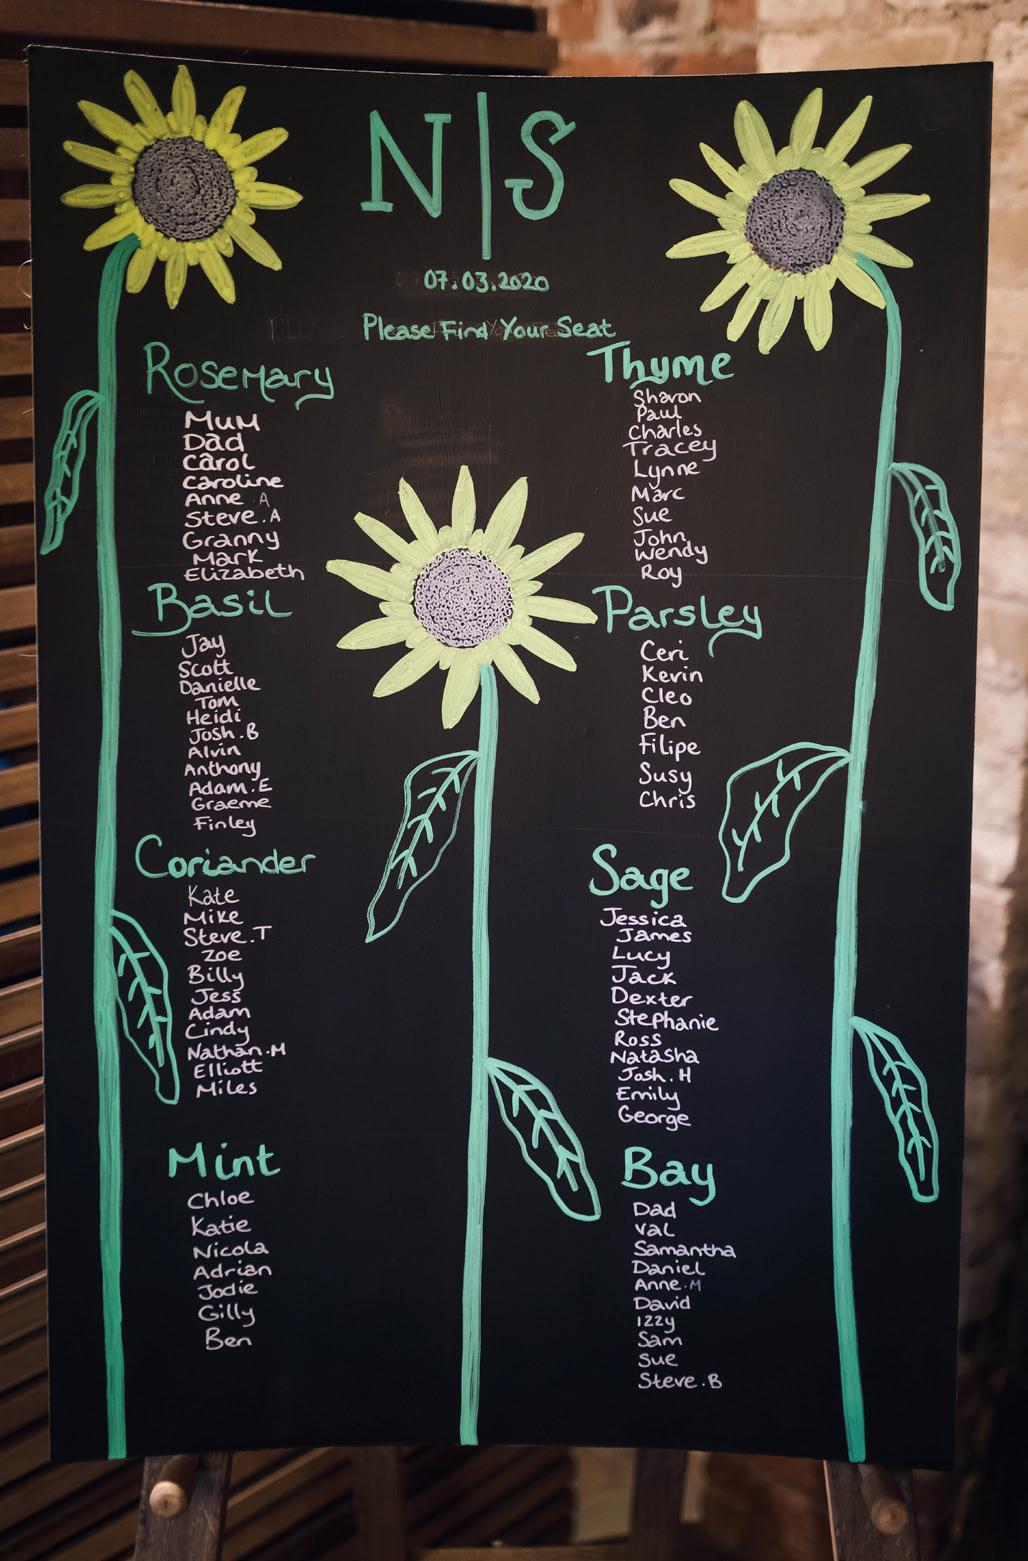 N|S
07.03.2020
Please Find Your Seat
Rosemary
Mum
Dad
Carol
Caroline
Anne A
Steve.A
Granny
Mark
Elizabeth
Basil
Jay
Scott
Danielle
Tom
Heidi
Josh.B
Alvin
Anthony
Adam.E
Graeme
Finley
Coriander
Kate
Mike
Steve.T
Zoe
Billy
Jess
Adam
Cindy
Nathan.M
Elliott
Miles
Mint
Chloe
Katie
Nicola
Adrian
Jodie
Gilly
Ben
Thyme
Sharon
Paul
Charles
Tracey
Lynne
Marc
Sue
John
Wendy
Roy
Parsley
Ceri
Kevin
Cleo
Ben
Filipe
Susy
Chris
Sage
Jessica
James
Lucy
Jack
Dexter
Stephanie
Ross
Natasha
Josh.H
Emily
George
Bay
Dad
Val
Samantha
Daniel
Anne.M
David
Izzy
Sam
Sue
Steve.B